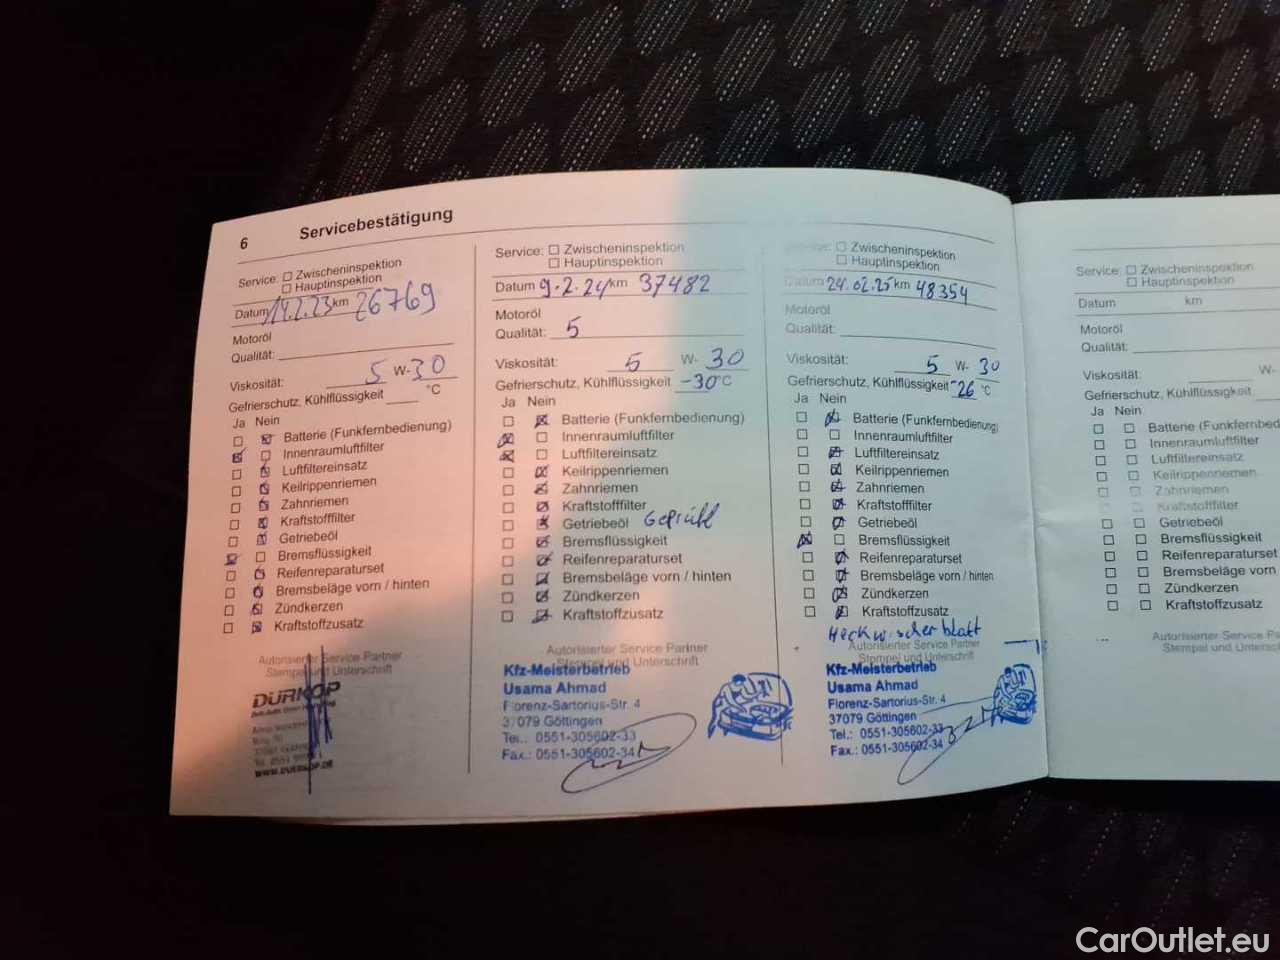 6 Servicebestätigung
Service: Zwischeninspektion
Hauptinspektion
Datum 14.2.23 km 26769
Motoröl
Qualität:
Viskosität: 5 W-30
Gefrierschutz, Kühlflüssigkeit °C
Ja Nein
Batterie (Funkfernbedienung)
Innenraumluftfilter
Luftfiltereinsatz
Keilrippenriemen
Zahnriemen
Kraftstofffilter
Getriebeöl
Bremsflüssigkeit
Reifenreparaturset
Bremsbeläge vorn / hinten
Zündkerzen
Kraftstoffzusatz
Autorisierter Service Partner
Stempel und Unterschrift
DÜRKOP
WWW.DUERKOP.DE
Service: Zwischeninspektion
Hauptinspektion
Datum 9.2.24 km 37482
Motoröl
Qualität: 5
Viskosität: 5 W-30
Gefrierschutz, Kühlflüssigkeit -30°C
Ja Nein
Batterie (Funkfernbedienung)
Innenraumluftfilter
Luftfiltereinsatz
Keilrippenriemen
Zahnriemen
Kraftstofffilter
Getriebeöl Geprüft
Bremsflüssigkeit
Reifenreparaturset
Bremsbeläge vorn / hinten
Zündkerzen
Kraftstoffzusatz
Autorisierter Service Partner
Stempel und Unterschrift
Kfz-Meisterbetrieb
Usama Ahmad
Florenz-Sartorius-Str. 4
37079 Göttingen
Tel.: 0551-305602-33
Fax.: 0551-305602-34
Service: Zwischeninspektion
Hauptinspektion
Datum 24.02.25 km 48354
Motoröl
Qualität:
Viskosität: 5 W-30
Gefrierschutz, Kühlflüssigkeit -26 °C
Ja Nein
Batterie (Funkfernbedienung)
Innenraumluftfilter
Luftfiltereinsatz
Keilrippenriemen
Zahnriemen
Kraftstofffilter
Getriebeöl
Bremsflüssigkeit
Reifenreparaturset
Bremsbeläge vorn / hinten
Zündkerzen
Kraftstoffzusatz
Heckwischerblatt
Autorisierter Service Partner
Stempel und Unterschrift
Kfz-Meisterbetrieb
Usama Ahmad
Florenz-Sartorius-Str. 4
37079 Göttingen
Tel.: 0551-305602-33
Fax.: 0551-305602-34
Service: Zwischeninspektion
Hauptinspektion
Datum km
Motoröl
Qualität:
Viskosität: W-
Gefrierschutz, Kühlflüssigkeit
Ja Nein
Batterie (Funkfernbedienung)
Innenraumluftfilter
Luftfiltereinsatz
Keilrippenriemen
Zahnriemen
Kraftstofffilter
Getriebeöl
Bremsflüssigkeit
Reifenreparaturset
Bremsbeläge vorn
Zündkerzen
Kraftstoffzusatz
Autorisierter Service Par
Stempel und Untersch
CarOutlet.eu